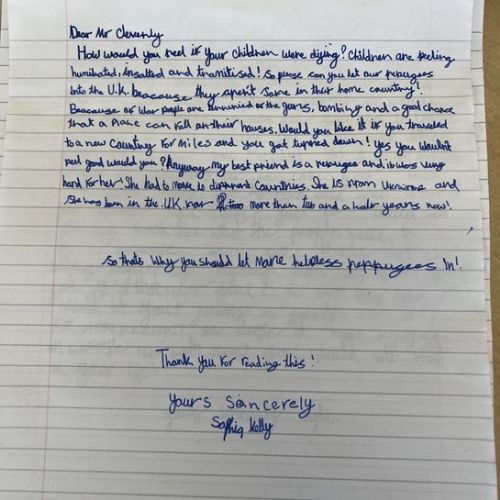 Dear Mr Cleverly
How would you feel if your children were dying? Children are feeling
humiliated, insalted and tramitised! So please can you let our refugees
into the U.K. beacause they aren't safe in their home country!
Beacause of War people are terrified of the guns, bombing and a good chance
that a Plane can fall on their houses. Would you like it if you traveled
to a new Country for Miles and you got turned down! Yes you wouldn't
feel good would you? Anyway my best friend is a refugee and it was very
hard for her! She had to move to different Countries. She is from Ukraine and
she has been in the UK for more than two and a half years now!
So thats why you should let More helpless refugees in!
Thank you for reading this!
Yours Sancerely
Sophia Kelly